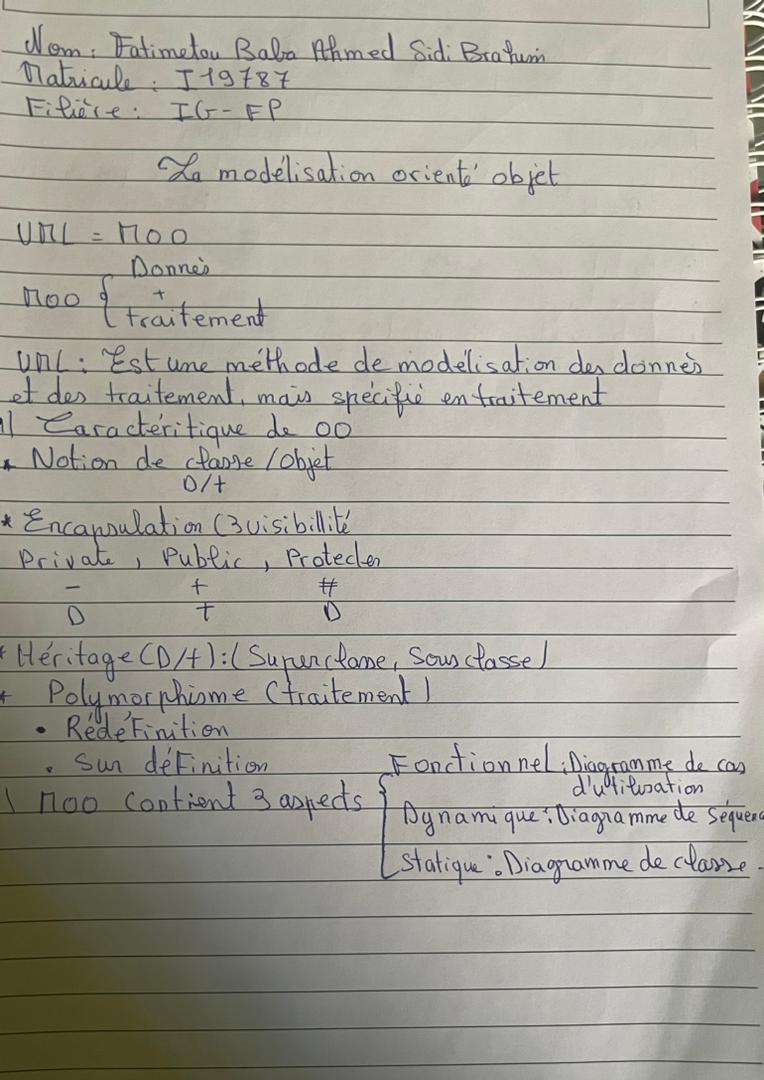 Nom : Fatimetou Baba Ahmed Sidi Brahim
Matricule : I19787
Filière : IG-FP
La modélisation orienté objet
UML = MOO
Donnès
MOO { +
traitement
UML : Est une méthode de modélisation des donnès
et des traitement, mais spécifié en traitement
1) Caractéritique de OO
* Notion de classe / Objet
D/t
* Encapsulation (3 visibillité
Private , Public , Protecter
- + #
D T D
* Héritage (D/t) : (Superclasse, Sous classe)
* Polymorphisme (traitement)
• RédéFinition
• Sur déFinition
) MOO Contient 3 aspects {
Fonctionnel : Diagramme de cas
d'utilisation
Dynamique : Diagramme de Séquenc
Statique : Diagramme de classe -